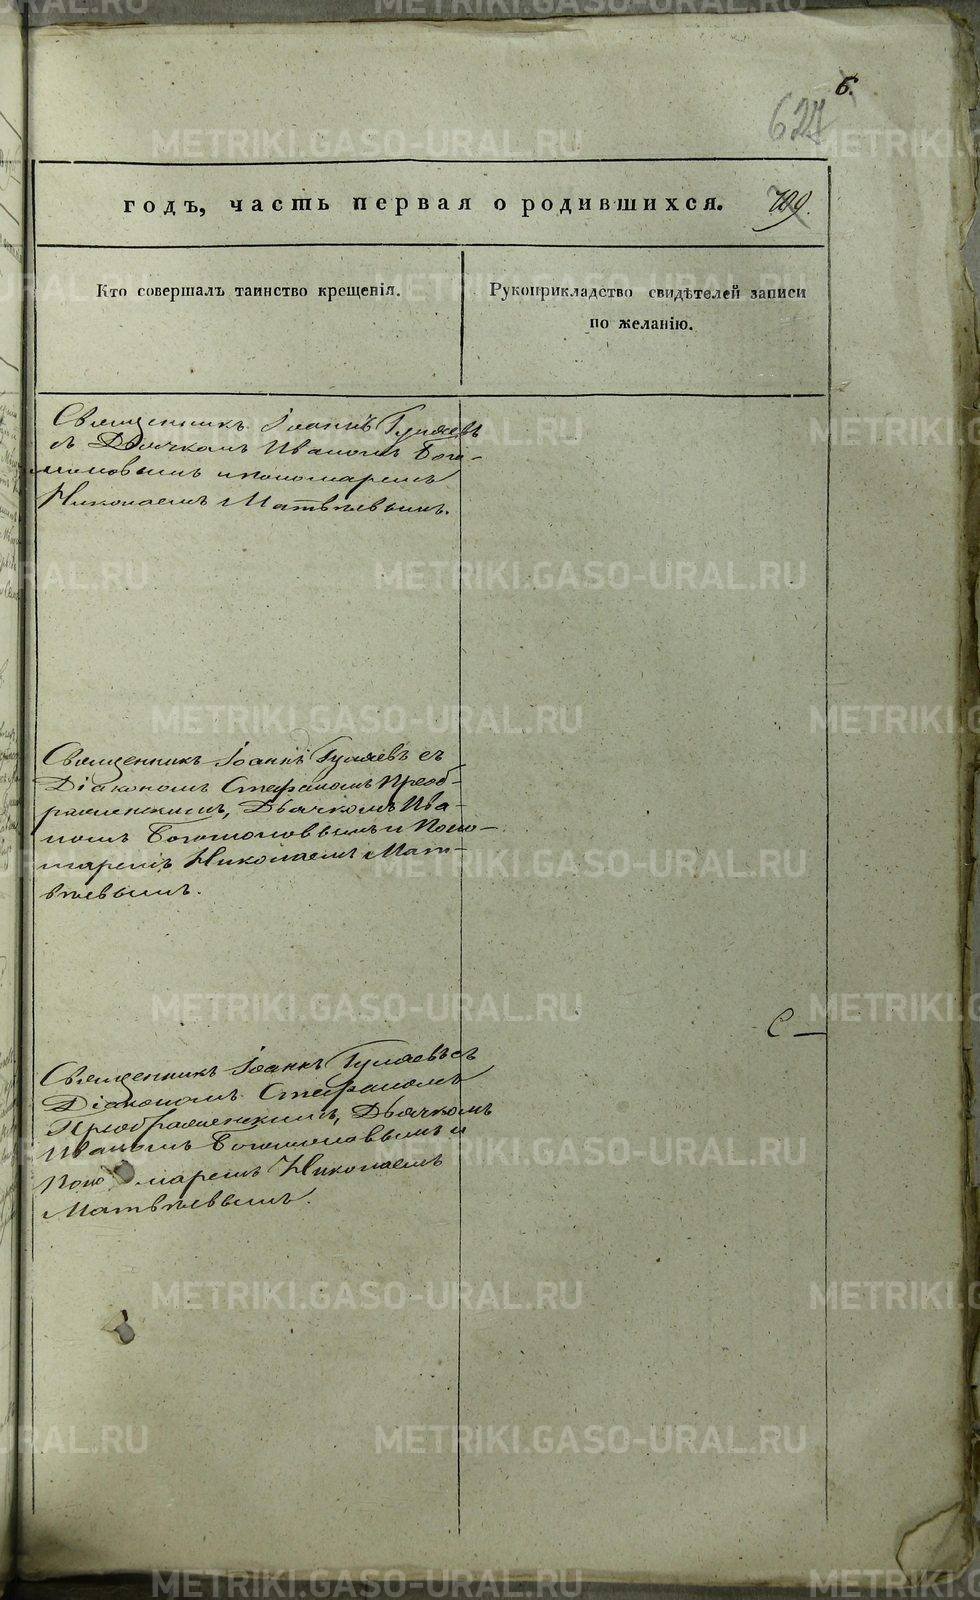 6.
627
годъ, часть первая о родившихся. 709.
Кто совершалъ таинство крещенія.
Рукоприкладство свидѣтелей записи
по желанію.
Священникъ Іоаннъ Гуляевъ
съ Дьячкомъ Иваномъ Бого-
моловымъ и пономаремъ
Николаемъ Матвѣевымъ.
Священникъ Іоаннъ Гуляевъ съ
Діакономъ Стефаномъ Преоб-
раженскимъ, Дьячкомъ Ива-
номъ Богомоловымъ и Поно-
маремъ Николаемъ Мат-
вѣевымъ.
С —
Священникъ Іоаннъ Гуляевъ съ
Діакономъ Стефаномъ
Преображенскимъ, Дьячкомъ
Иваномъ Богомоловымъ и
Пономаремъ Николаемъ
Матвѣевымъ.
METRIKI.GASO-URAL.RU